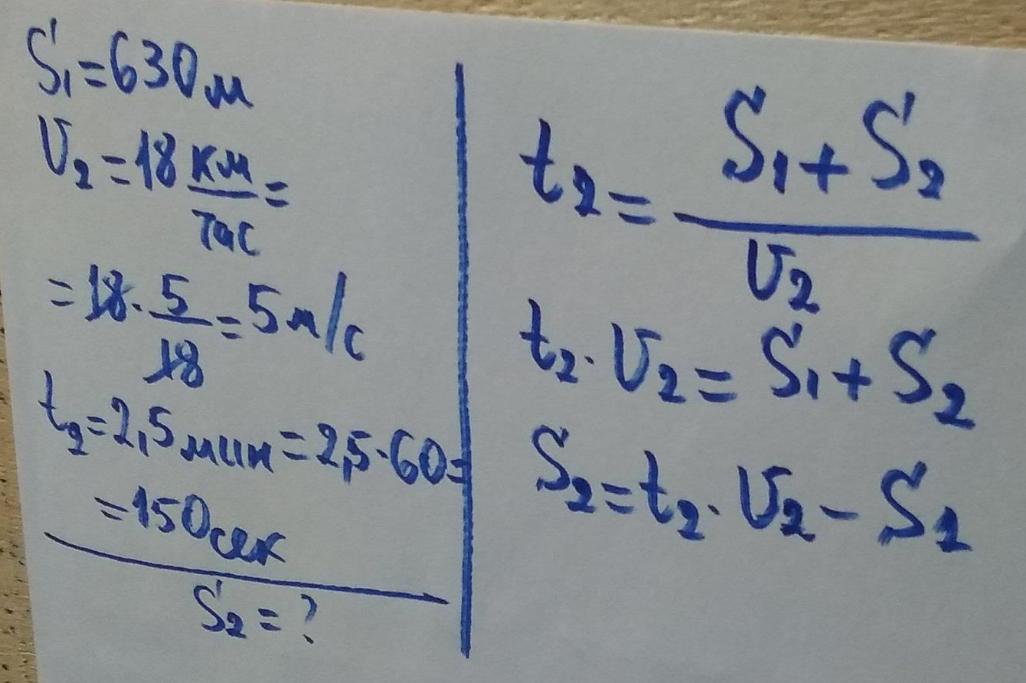 S₁=630м
V₂=18 км/час=
=18·5/18=5м/с
t₂=2,5мин=2,5·60=
=150сек
S₂=?
t₂=(S₁+S₂)/V₂
t₂·V₂=S₁+S₂
S₂=t₂·V₂-S₁